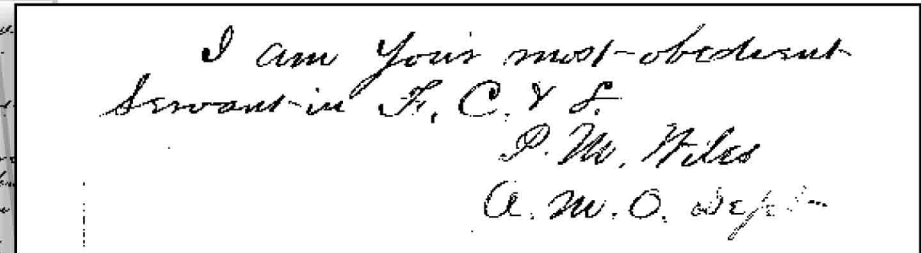 I am Your most obedient
Servant in F, C. & L.
P. M. Wiles
A. M. O. Dept